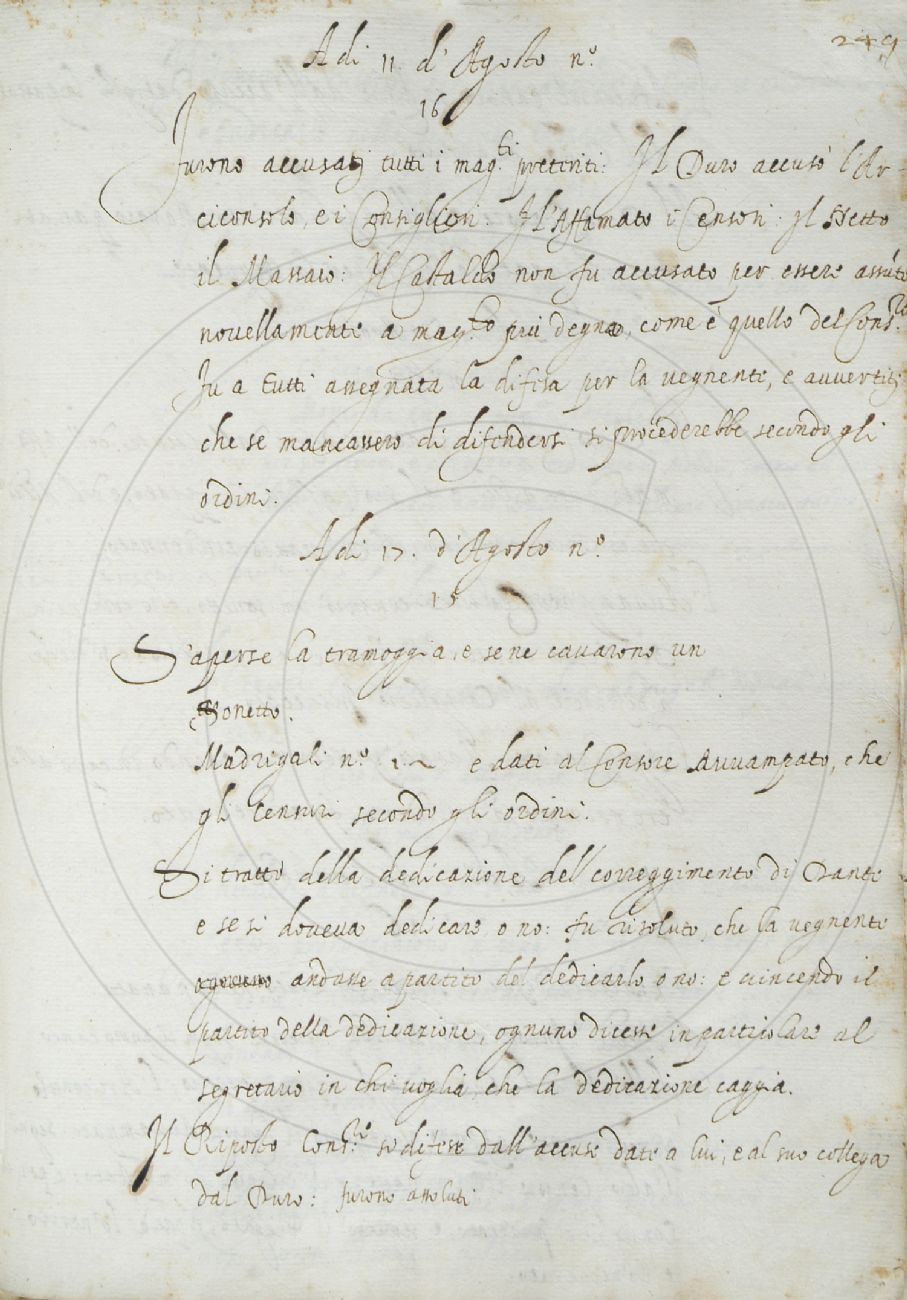 249
A di 11. d'Agosto n.º
16
Furono accusati tutti i mag.ti preteriti: Il Duro accusò l'Ar-
ciconsolo, e i Consiglieri: Il'Affamato i Censori: Il
il Massaio: Il Castaldo non fu accusato per essere assũto
novellamente a mag.to più degno, come è quello del Cons.ro
Fu a tutti assegnata la difesa per la vegnente, e avvertiti
che se mancassero di difendersi si procederebbe secondo gli
ordini.
A di 17. d'Agosto n.º
15
S'aperse la tramoggia, e se ne cavarono un
Sonetto.
Madrigali n.º e dati al Censore Avvampato, che
gli censuri secondo gli ordini.
Si trattò della dedicazione dell'correggimento di Dante
e se si doveva dedicare o no: fu risoluto, che la vegnente
andasse a partito del dedicarlo o no: e vincendo il
partito della dedicazione, ognuno dicesse in particolare al
segretario in chi voglia, che la dedicazione caggia.
Il Riposto Cons.re se difese dall'accuse date a lui, e al suo collega
dal Duro: furono assoluti